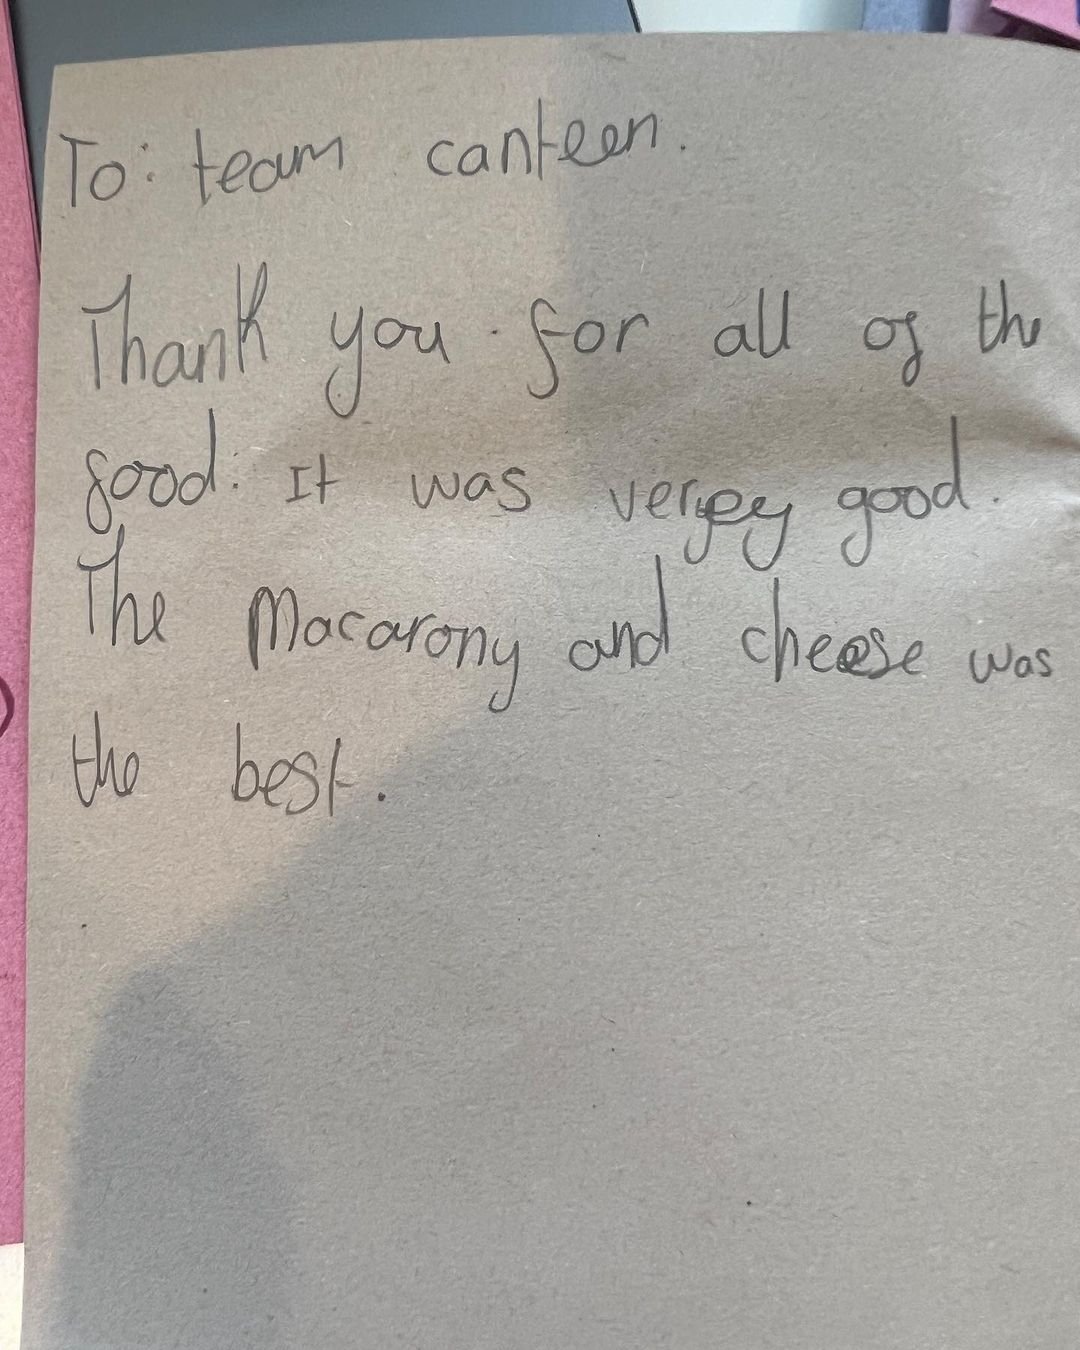 To: team canteen.
Thank you for all of the
food. It was verey good.
The Macarony and cheese was
the best.